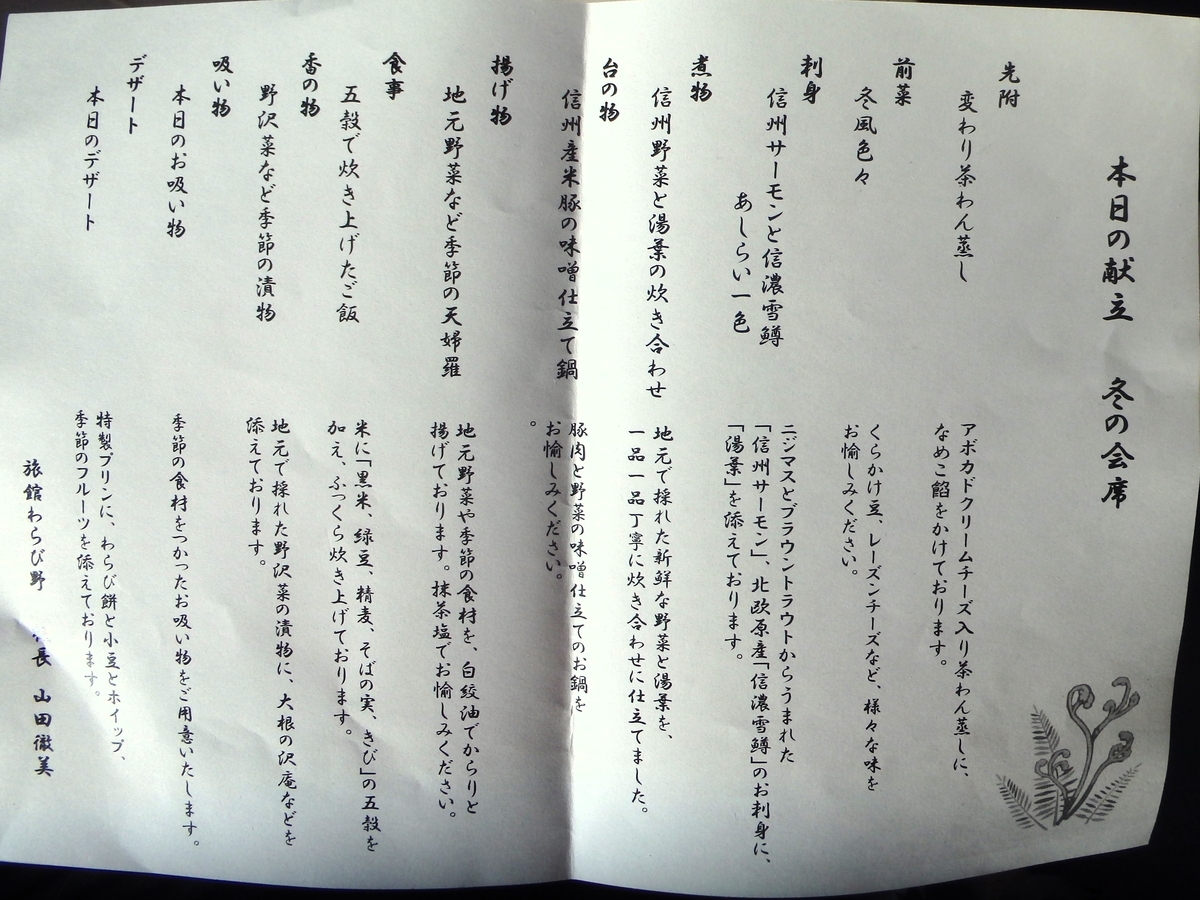 本日の献立　冬の会席
先附
変わり茶わん蒸し
アボカドクリームチーズ入り茶わん蒸しに、
なめこ餡をかけております。
前菜
冬風色々
くらかけ豆、レーズンチーズなど、様々な味を
お愉しみください。
刺身
信州サーモンと信濃雪鱒
あしらい一色
ニジマスとブラウントラウトからうまれた
「信州サーモン」、北欧原産「信濃雪鱒」のお刺身に、
「湯葉」を添えております。
煮物
信州野菜と湯葉の炊き合わせ
地元で採れた新鮮な野菜と湯葉を、
一品一品丁寧に炊き合わせに仕立てました。
台の物
信州産米豚の味噌仕立て鍋
豚肉と野菜の味噌仕立てのお鍋を
お愉しみください。
。
揚げ物
地元野菜など季節の天婦羅
地元野菜や季節の食材を、白絞油でからりと
揚げております。抹茶塩でお愉しみください。
食事
五穀で炊き上げたご飯
米に「黒米、緑豆、精麦、そばの実、きび」の五穀を
加え、ふっくら炊き上げております。
香の物
野沢菜など季節の漬物
地元で採れた野沢菜の漬物に、大根の沢庵などを
添えております。
吸い物
本日のお吸い物
季節の食材をつかったお吸い物をご用意いたします。
デザート
本日のデザート
特製プリンに、わらび餅と小豆とホイップ、
季節のフルーツを添えております。
旅館わらび野　長　山田徹美